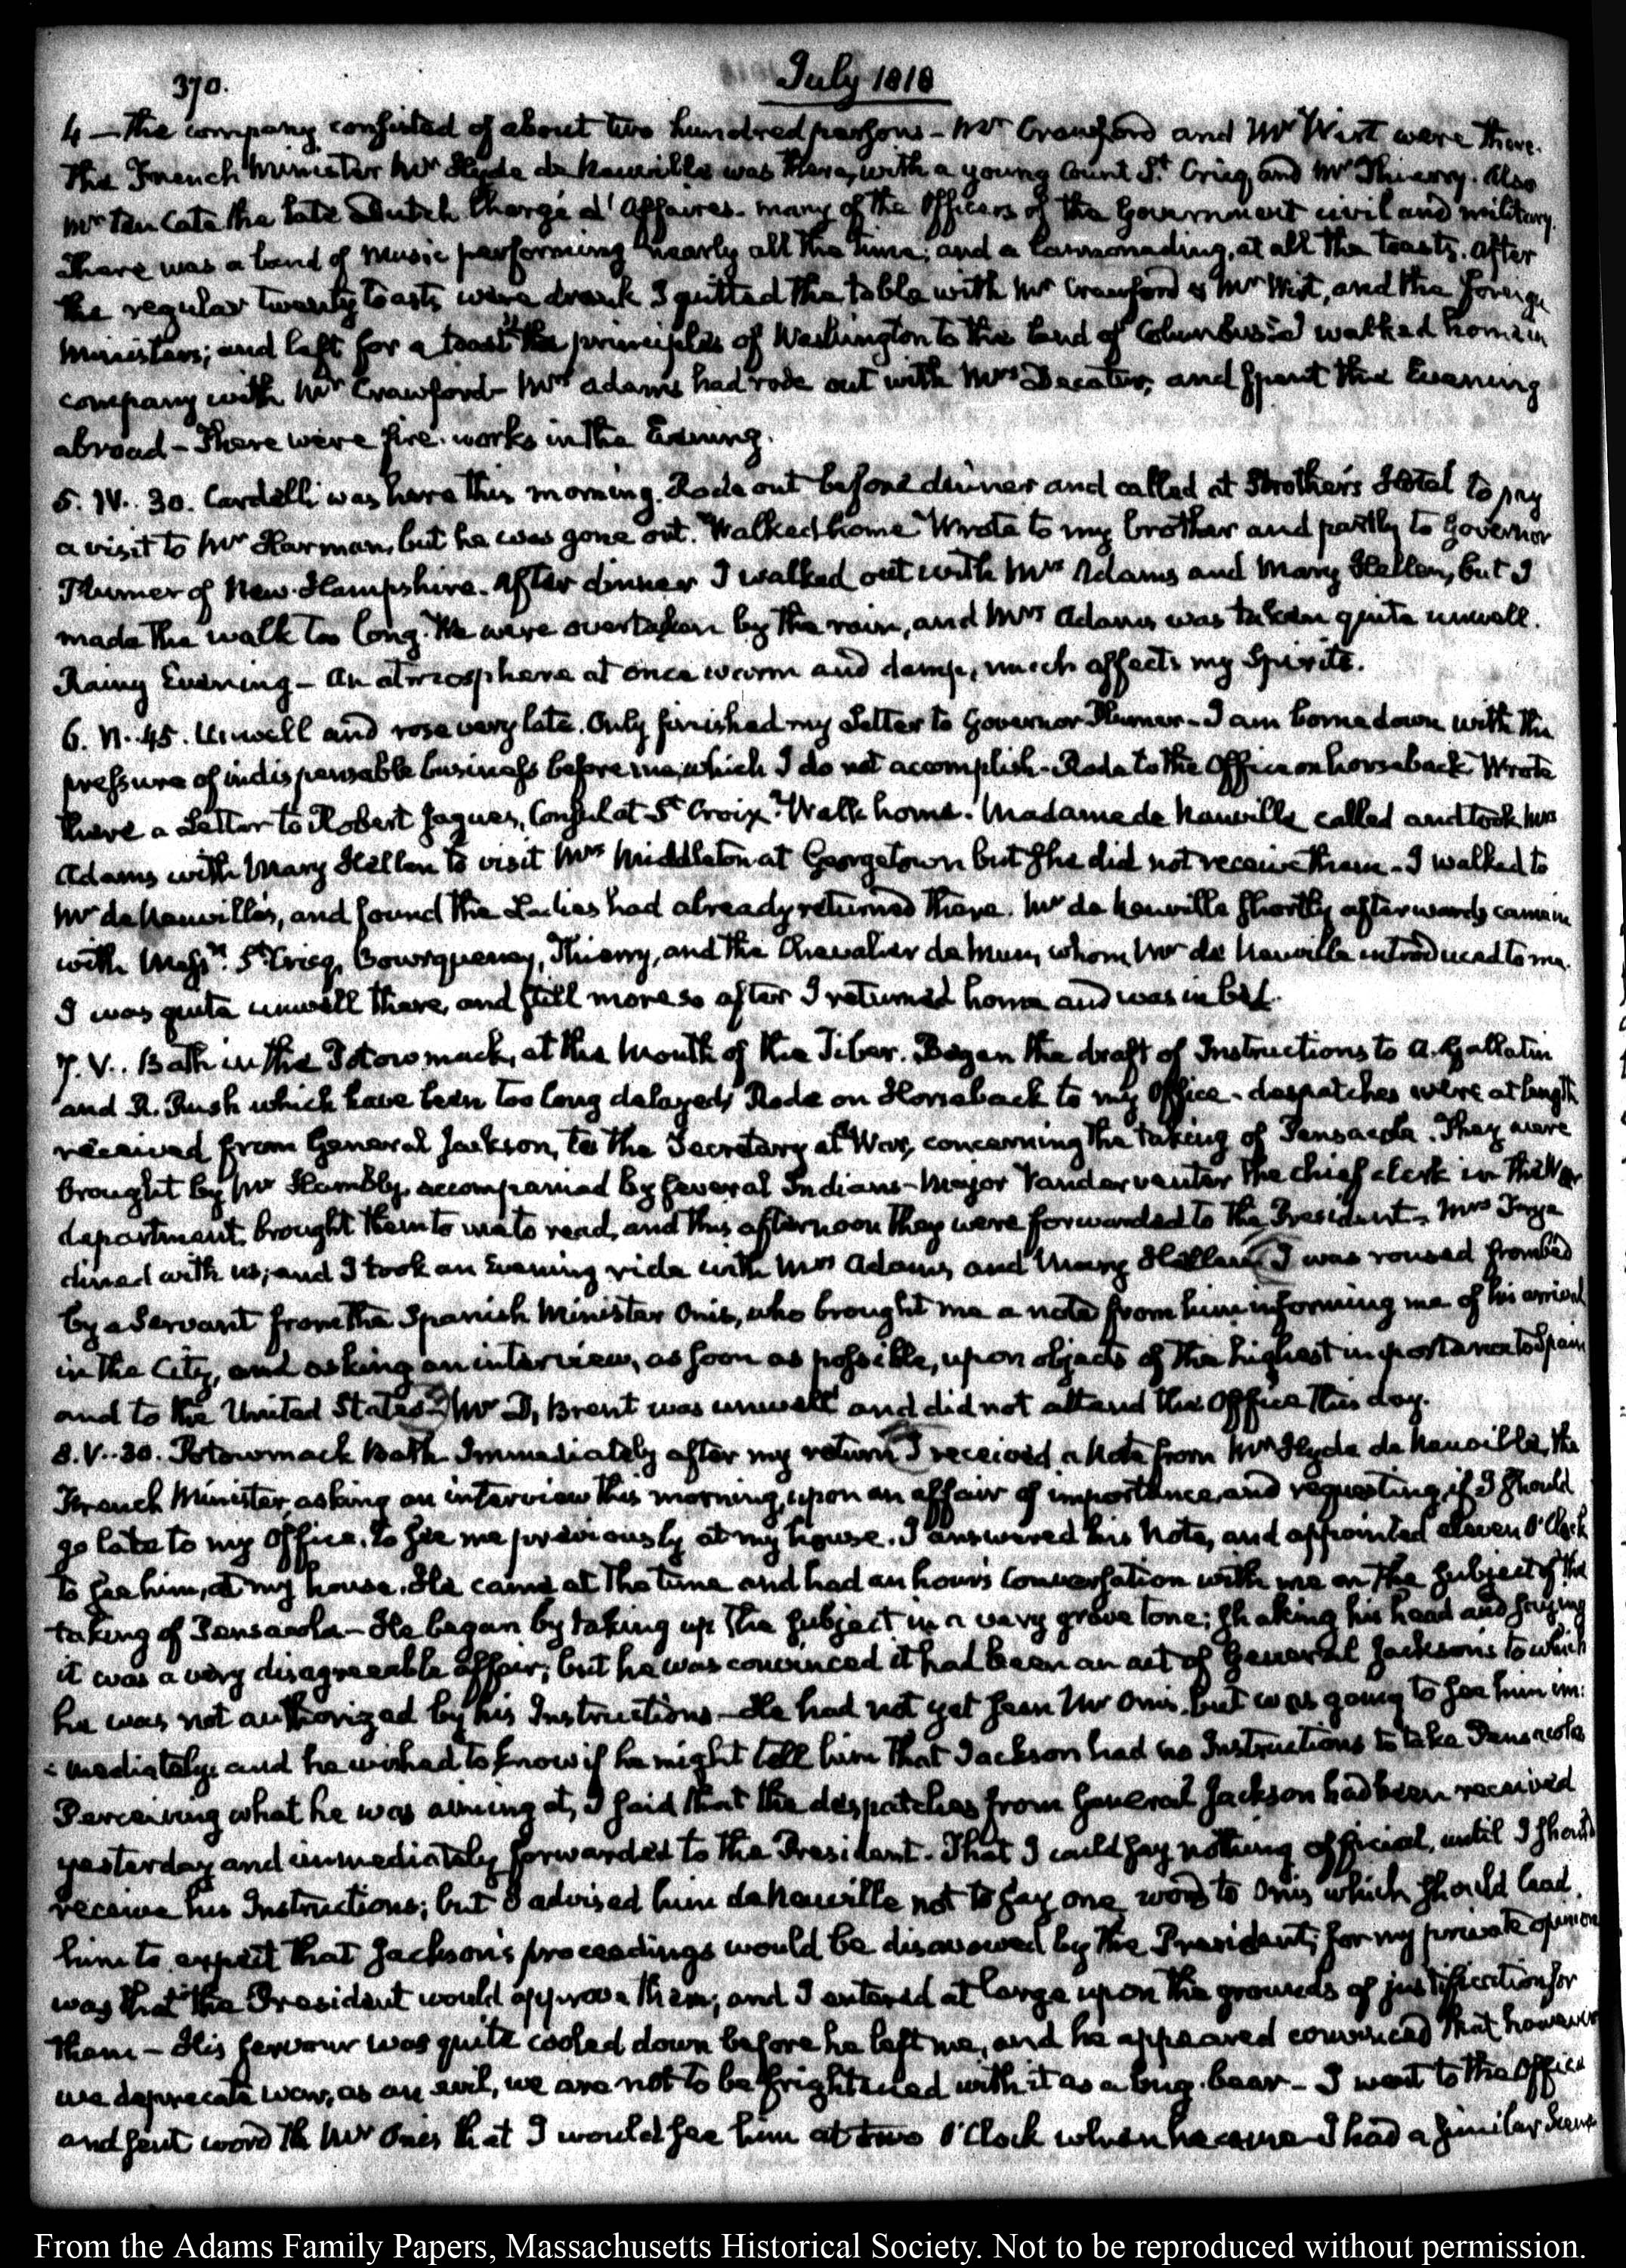 370.
July 1818
4 — The company consisted of about two hundred persons – Mr Crawford and Mr Wirt were there.
The French Minister Mr Hyde de Neuville was there, with a young Count St. Cricq and Mr Thierry. Also
Mr ten Cate the late Dutch Chargé d'Affaires. Many of the Officers of the Government civil and military.
There was a band of Music performing nearly all the time; and a Cannonading, at all the toasts. After
the regular twenty toasts were drank I quitted the table with Mr Crawford & Mr Wirt, and the foreign
Ministers; and left for a toast "the principles of Washington to the land of Columbus." I walked home in
company with Mr Crawford – Mrs Adams had rode out with Mrs Decatur, and spent the Evening
abroad – There were fire-works in the Evening.
5. IV.. 30. Cardelli was here this morning. Rode out before dinner and called at Strother's Hotel to pay
a visit to Mr Harman, but he was gone out. Walked home. Wrote to my brother and partly to Governor
Plumer of New-Hampshire. After dinner I walked out with Mrs Adams and Mary Hellen, but I
made the walk too long. We were overtaken by the rain, and Mrs Adams was taken quite unwell.
Rainy Evening – An atmosphere at once warm and damp, much affects my Spirits.
6. VI..45. Unwell and rose very late. Only finished my Letter to Governor Plumer – I am borne down with the
pressure of indispensable business before me, which I do not accomplish – Rode to the Office on horseback. Wrote
there a Letter to Robert Jaques, Consul at St Croix. Walk home. Madame de Neuville called and took Mrs
Adams with Mary Hellen to visit Mrs Middleton at Georgetown but she did not receive them – I walked to
Mr de Neuville's, and found the Ladies had already returned there. Mr de Neuville shortly afterwards came in
with Messrs. St Cricq, Bourqueney, Thierry, and the Chevalier de Mun, whom Mr de Neuville introduced to me.
I was quite unwell there, and still more so after I returned home and was in bed.
7. V.. Bath in the Potowmack, at the Mouth of the Tiber. Began the draft of Instructions to A. Gallatin
and R. Rush which have been too long delayed. Rode on Horseback to my Office – despatches were at length
received from General Jackson, to the Secretary at War, concerning the taking of Pensacola. They were
brought by Mr Hambly, accompanied by several Indians – Major Vanderventer the chief clerk in the War
department, brought them to me to read, and this afternoon they were forwarded to the President – Mrs Frye
dined with us; and I took an Evening ride with Mrs Adams, and Mary Hellen. I was roused from bed
by a Servant from the Spanish Minister Onis, who brought me a note from him informing me of his arrival
in the City, and asking an interview, as soon as possible, upon objects of the highest importance to Spain
and to the United States – Mr D, Brent was unwell and did not attend the Office this day.
8. V..30. Potowmack Bath. Immediately after my return I received a Note from Mr Hyde de Neuville, the
French Minister, asking an interview this morning, upon an affair of importance, and requesting, if I should
go late to my Office, to see me previously at my house. I answered his Note, and appointed eleven O'Clock
to see him, at my house. He came at the time and had an hour's Conversation with me on the subject of the
taking of Pensacola – He began by taking up the subject in a very grave tone; shaking his head and saying
it was a very disagreeable affair; but he was convinced it had been an act of General Jackson's to which
he was not authorized by his Instructions – He had not yet seen Mr Onis, but was going to see him im:
:mediately, and he wished to know if he might tell him that Jackson had no Instructions to take Pensacola
Perceiving what he was aiming at, I said that the despatches from General Jackson had been received
yesterday and immediately forwarded to the President. That I could say nothing official, until I should
receive his Instructions; but I advised him de Neuville not to say one word to Onis which should lead
him to expect that Jackson's proceedings would be disavowed by the President; for my private opinion
was that the President would approve them; and I entered at large upon the grounds of justification for
them – His fervour was quite cooled down before he left me, and he appeared convinced that however
we deprecate war, as an evil, we are not to be frightened with it as a bug-bear – I went to the Office
and sent word to Mr Onis that I would see him at two O'Clock when he came I had a similar Scene
From the Adams Family Papers, Massachusetts Historical Society. Not to be reproduced without permission.